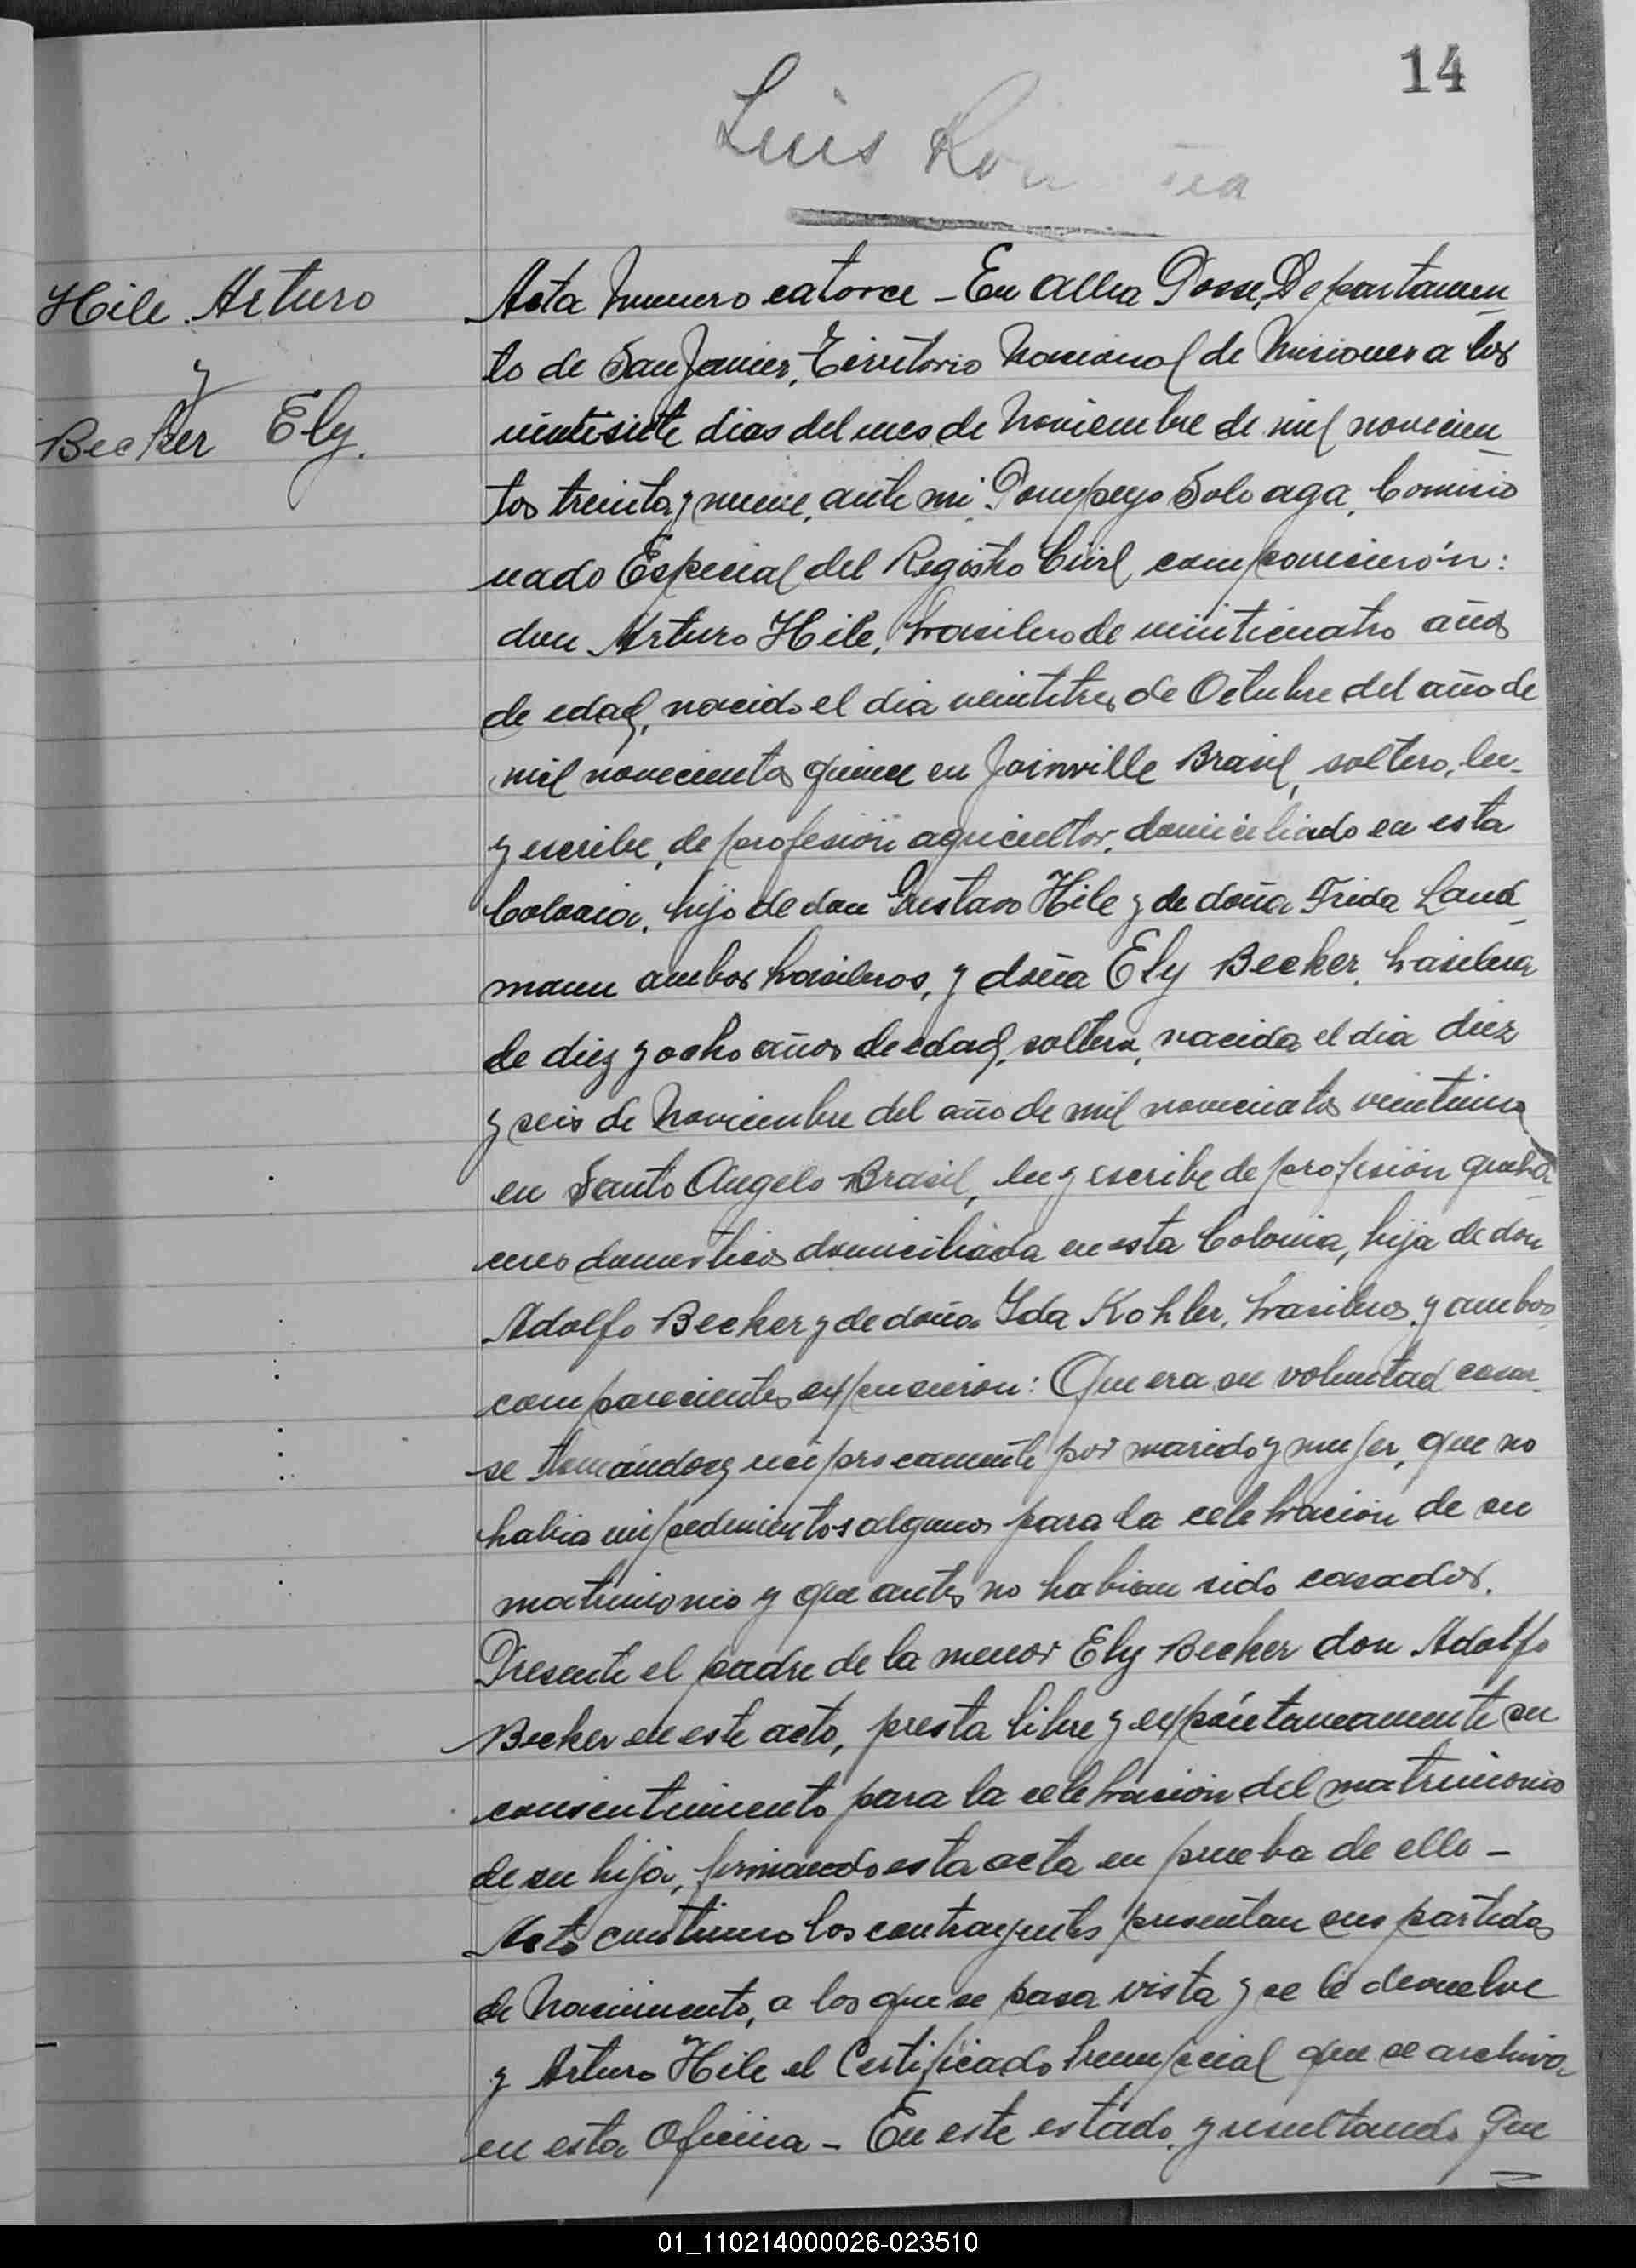 14
Luis
Hile Arturo
y
Becker Ely.
Acta Numero catorce - En Alba Posse, Departamen
to de San Javier, Territorio Nacional de Misiones a los
veintisiete dias del mes de Noviembre de mil novecien
tos treinta y nueve, ante mi Pompeyo Soloaga, Comisio
nado Especial del Registro Civil, comparecierón:
don Arturo Hile, brasilero de veinticuatro años
de edad, nacido el dia veintitres de Octubre del año de
mil novecientos quince en Joinville Brasil, soltero, lee
y escribe, de profesión agricultor, domiciliado en esta
Colonia, hijo de don Gustavo Hile y de doña Frida Land
mann ambos brasileros, y doña Ely Becker, brasilera
de diez y ocho años de edad, soltera, nacida el dia diez
y seis de Noviembre del año de mil novecientos veintiuno
en Santo Angelo Brasil, lee y escribe de profesión queha
ceres domesticos domiciliada en esta Colonia, hija de don
Adolfo Becker y de doña Ida Kohler, brasileros, y ambos
comparecientes expusieron: Que era su voluntad casar
se tomándose reciprocamente por marido y mujer, que no
habia impedimentos algunos para la celebración de su
matrimonio y que antes no habian sido casados.
Presente el padre de la menor Ely Becker don Adolfo
Becker en este acto, presta libre y expóntaneamente su
consentimiento para la celebración del matrimonio
de su hija, firmando esta acta en prueba de ello -
Acto continuo los contrayentes presentan sus partidas
de Nacimiento, a los que se pasa vista y se le devuelve
y Arturo Hile el Certificado Prenupcial que se archiva
en esta Oficina - En este estado, y resultando que
01_110214000026-023510